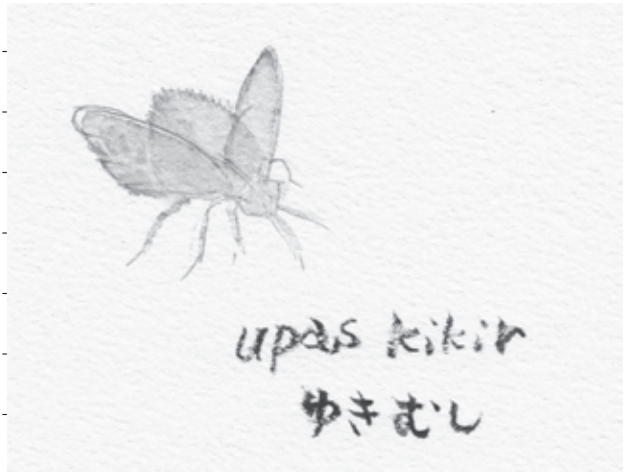 upas kikir
ゆきむし